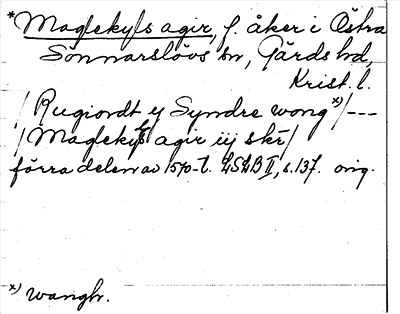 *Maglekyls agir, f. åker i Östra
Sönnarslövs sn, Gärds hd,
Krist. l.
/ Rugiordt ij Syndre wong *) / ---
/ Maglekyls agir iij skr /
förra delen av 1570-t. LSLB II, s. 137. orig.
*) wangh.